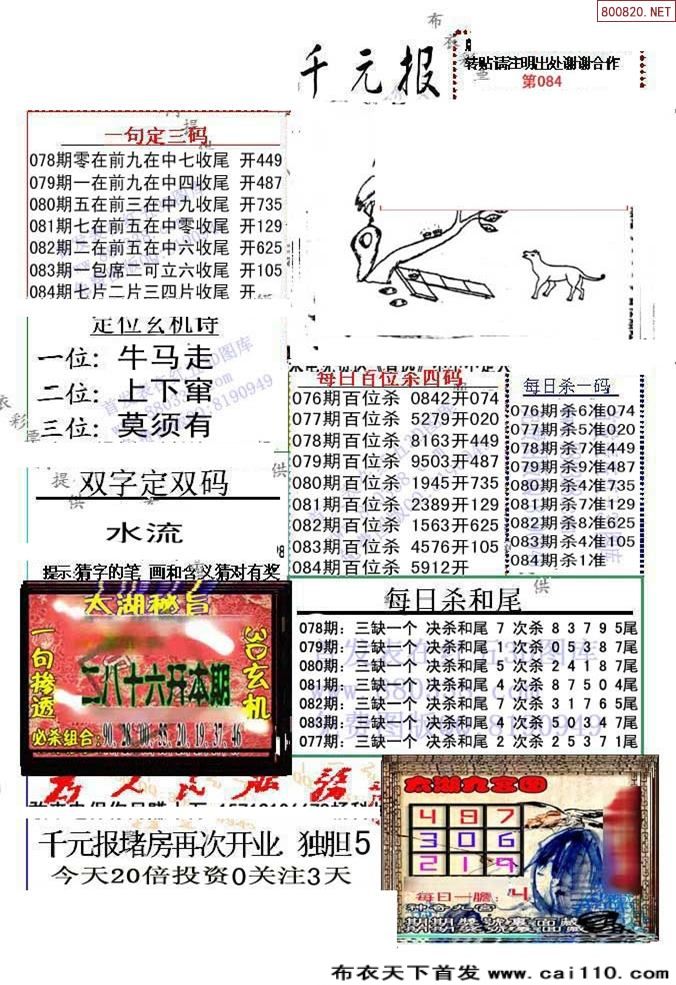 800820.NET
千元报
转贴请注明出处谢谢合作
第084
一句定三码
078期零在前九在中七收尾 开449
079期一在前九在中四收尾 开487
080期五在前三在中九收尾 开735
081期七在前五在中零收尾 开129
082期二在前五在中六收尾 开625
083期一包席二可立六收尾 开105
084期七片二片三四片收尾 开
定位玄机诗
一位: 牛马走
二位: 上下窜
三位: 莫须有
双字定双码
水流
提示:猜字的笔 画和含义猜对有奖
每日百位杀四码
076期百位杀 0842开074
077期百位杀 5279开020
078期百位杀 8163开449
079期百位杀 9503开487
080期百位杀 1945开735
081期百位杀 2389开129
082期百位杀 1563开625
083期百位杀 4576开105
084期百位杀 5912开
每日杀一码
076期杀6准074
077期杀5准020
078期杀7准449
079期杀9准487
080期杀4准735
081期杀7准129
082期杀8准625
083期杀4准105
084期杀1准
太湖秘旨
一句掺透
3D玄机
二八十六开本期
必杀组合:90、28、00、33、20、19、37、46
每日杀和尾
078期: 三缺一个 决杀和尾 7 次杀 8 3 7 9 5尾
079期: 三缺一个 决杀和尾 1 次杀 0 5 3 8 7尾
080期: 三缺一个 决杀和尾 5 次杀 2 4 1 8 7尾
081期: 三缺一个 决杀和尾 4 次杀 8 7 5 0 4尾
082期: 三缺一个 决杀和尾 7 次杀 3 1 7 6 5尾
083期: 三缺一个 决杀和尾 4 次杀 5 0 3 4 7尾
077期: 三缺一个 决杀和尾 2 次杀 2 5 3 7 1尾
千元报堵房再次开业 独胆5
今天20倍投资0关注3天
太湖九宫图
4 8 7
3 0 6
2 1 9
每日一胆: 4
布衣天下首发 www.cai110.com